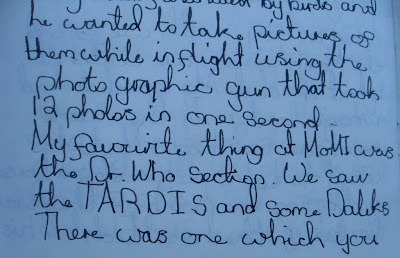 by birds and
he wanted to take pictures of
them while in flight using the
photo graphic gun that took
12 photos in one second.
My favourite thing at MoMI was
the Dr. Who section. We saw
the TARDIS and some Daleks
There was one which you